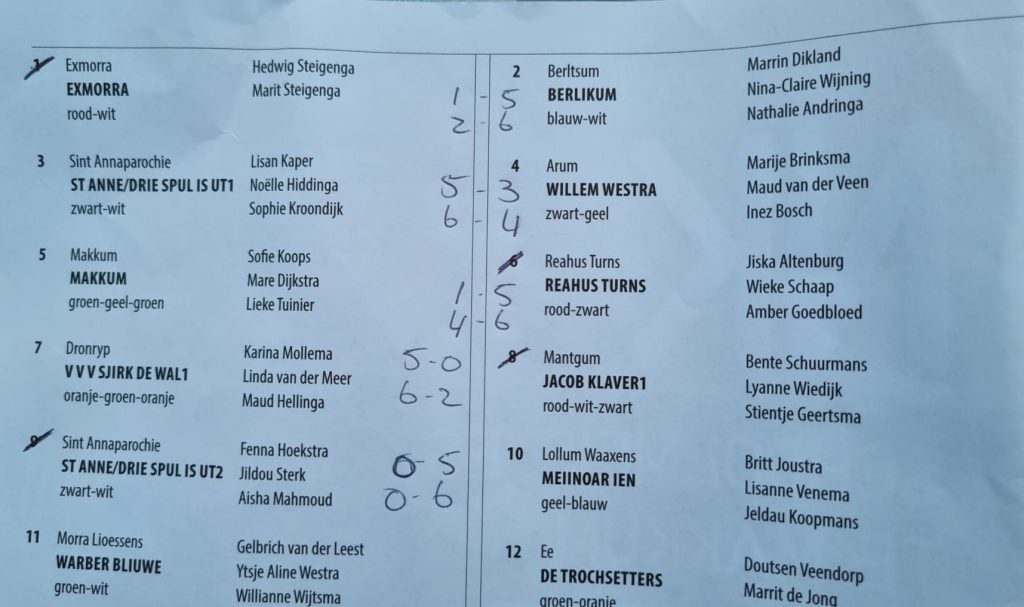 1 Exmorra Hedwig Steigenga
EXMORRA Marit Steigenga
rood-wit
1 - 5
2 - 6
2 Berltsum Marrin Dikland
BERLIKUM Nina-Claire Wijning
blauw-wit Nathalie Andringa
3 Sint Annaparochie Lisan Kaper
ST ANNE/DRIE SPUL IS UT1 Noëlle Hiddinga
zwart-wit Sophie Kroondijk
5 - 3
6 - 4
4 Arum Marije Brinksma
WILLEM WESTRA Maud van der Veen
zwart-geel Inez Bosch
5 Makkum Sofie Koops
MAKKUM Mare Dijkstra
groen-geel-groen Lieke Tuinier
1 - 5
4 - 6
6 Reahus Turns Jiska Altenburg
REAHUS TURNS Wieke Schaap
rood-zwart Amber Goedbloed
7 Dronryp Karina Mollema
V V V SJIRK DE WAL1 Linda van der Meer
oranje-groen-oranje Maud Hellinga
5-0
6-2
8 Mantgum Bente Schuurmans
JACOB KLAVER1 Lyanne Wiedijk
rood-wit-zwart Stientje Geertsma
9 Sint Annaparochie Fenna Hoekstra
ST ANNE/DRIE SPUL IS UT2 Jildou Sterk
zwart-wit Aisha Mahmoud
0-5
0-6
10 Lollum Waaxens Britt Joustra
MEIINOAR IEN Lisanne Venema
geel-blauw Jeldau Koopmans
11 Morra Lioessens Gelbrich van der Leest
WARBER BLIUWE Ytsje Aline Westra
groen-wit Willianne Wijtsma
12 Ee Doutsen Veendorp
DE TROCHSETTERS Marrit de Jong
groen-oranje